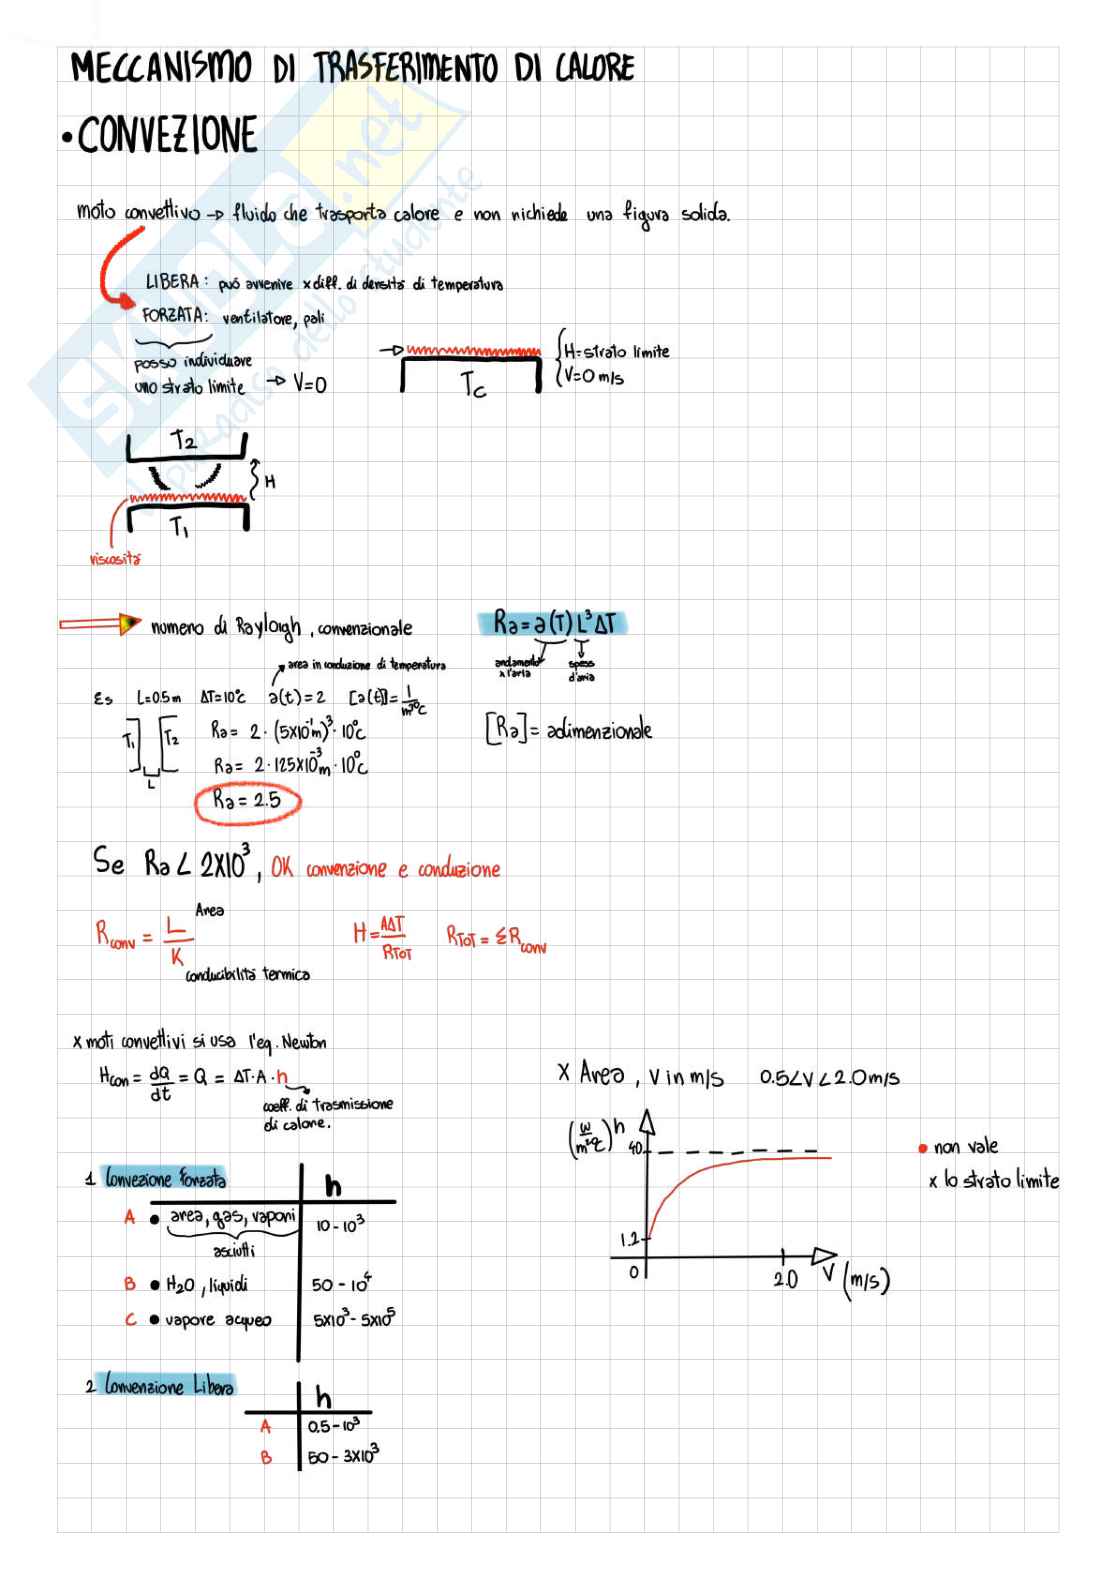 MECCANISMO DI TRASFERIMENTO DI CALORE
• CONVEZIONE
moto convettivo → fluido che trasporta calore e non richiede una figura solida.
LIBERA: può avvenire x diff. di densità di temperatura
FORZATA: ventilatore, pali
posso individuare
uno strato limite → V=0
H=strato limite
V=0 m/s
Tc
T2
H
T1
viscosità
numero di Rayleigh, convenzionale
Ra = a(T) L³ ΔT
andamento x l'aria
spess d'aria
area in conduzione di temperatura
Es L=0.5m ΔT=10°C a(t)=2 [a(t)]=1/m³°C
T1 T2
L
Ra = 2·(5x10⁻¹m)³·10°C
[Ra]= adimenzionale
Ra = 2·125x10⁻³m·10°C
Ra = 2.5
Se Ra < 2x10³, OK convenzione e conduzione
Area
Rconv = L/K
H = AΔT/RTOT RTOT = ΣRconv
conducibilità termica
x moti convettivi si usa l'eq. Newton
Hcon = dQ/dt = Q = ΔT·A·h
coeff. di trasmissione
di calore.
x Area, V in m/s 0.5<V<2.0m/s
(w/m²°C) h
40
1.2
0
2.0
V (m/s)
• non vale
x lo strato limite
1 Convezione forzata h
A • area, gas, vapori 10-10³
asciutti
B • H2O, liquidi 50-10⁴
C • vapore acqueo 5x10³-5x10⁵
2 Convenzione Libera h
A 0.5-10³
B 50-3x10³
SKUOLA.net
il paradiso dello studente